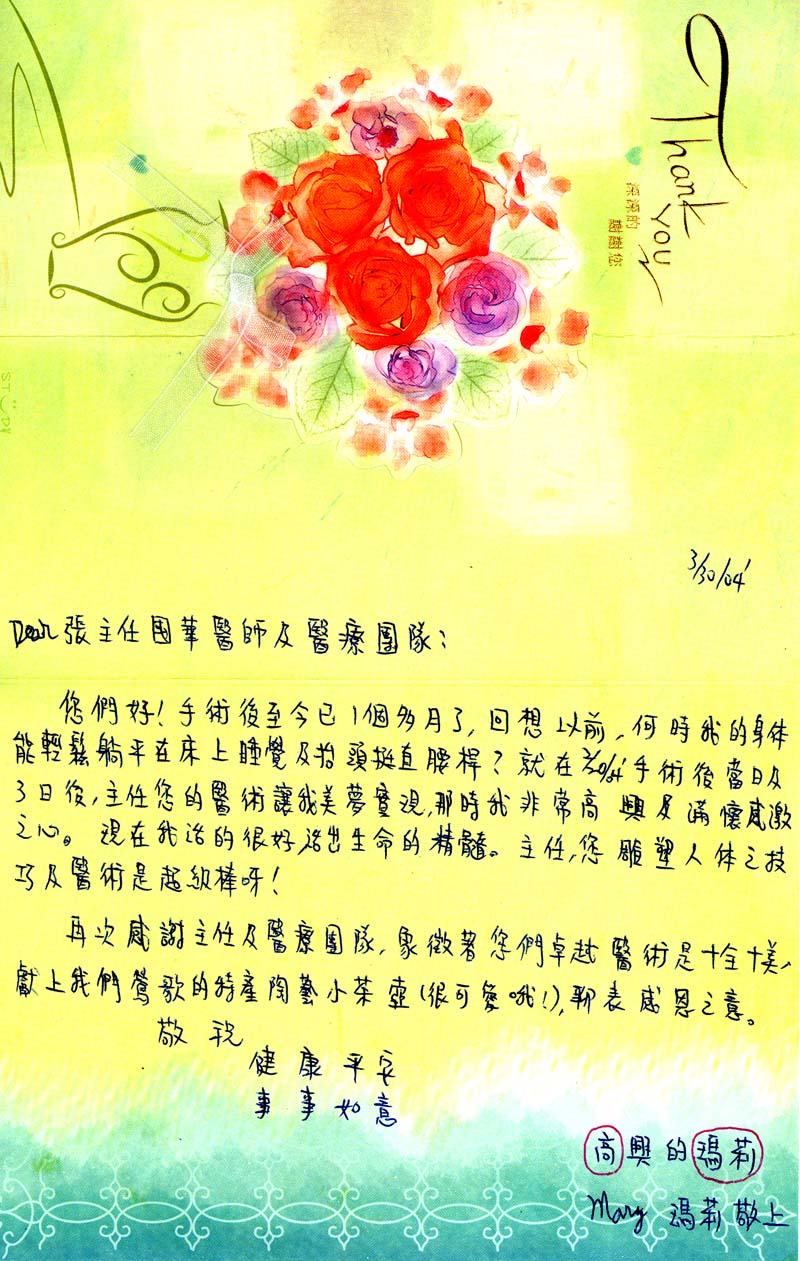 Thank you
深深的
謝謝您
3/30/04'
Dear 張主任國華醫師及醫療團隊:
您們好!手術後至今已1個多月了,回想以前,何時我的身体
能輕鬆躺平在床上睡覺及抬頭挺直腰桿?就在 手術後當日及
3日後,主任您的醫術讓我美夢實現,那時我非常高興及滿懷感激
之心。現在我活的很好,活出生命的精髓。主任,您雕塑人体之技
巧及醫術是超級棒呀!
再次感謝主任及醫療團隊,象徵著您們卓越醫術是十全十美,
獻上我們鶯歌的特產陶藝小茶壺(很可愛哦!),聊表感恩之意。
敬祝
健康平安
事事如意
高興的瑪莉
Mary 瑪莉敬上